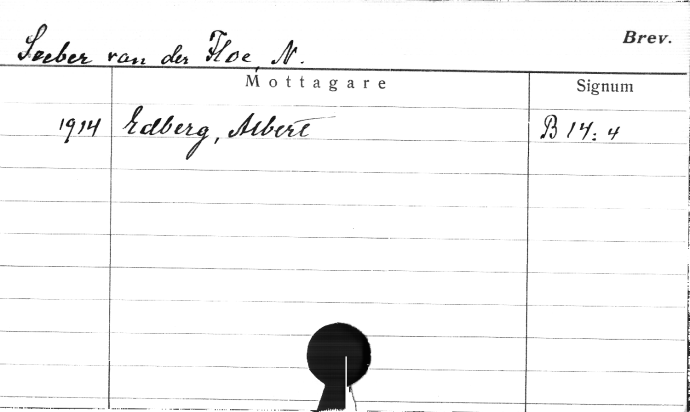 Seeber van der Floe, N.
Brev.
Mottagare
Signum
1914 Edberg, Albert B 14:4